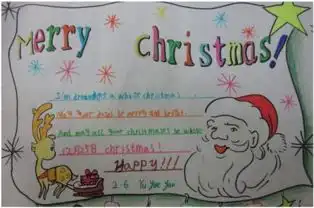 Merry christmas!
I'm dreaming of a white christmas
May your days be merry and bright
And may all your christmases be white
12月25日 christmas!
HAPPY!!!
2-6